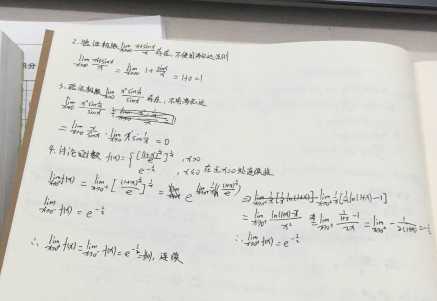 2. 验证极限 lim x→∞ (x+sinx)/x 存在, 不能用洛必达法则
lim x→∞ (x+sinx)/x = lim x→∞ 1+ sinx/x = 1+0=1
3. 验证极限 lim x→0 (x²sin 1/x)/sinx 存在, 不能用洛必达
lim x→0 (x²sin 1/x)/sinx
= lim x→0 x/sinx · lim x→0 x sin 1/x = 0
4. 讨论函数 f(x) = { [(1+x)^{1/x}/e]^{1/x}, x>0
e^{-1/2}, x≤0 在点x=0处连续性
lim x→0⁺ f(x) = lim x→0⁺ [(1+x)^{1/x}/e]^{1/x} = e
⇒ lim x→0⁺ 1/x[1/x ln(1+x)-1]
lim x→0⁻ f(x) = e^{-1/2}
= lim x→0⁺ (ln(1+x)-x)/x² = lim x→0⁺ (1/(1+x) -1)/2x = lim x→0⁺ - 1/2(1+x) = -1/2
∴ lim x→0⁺ f(x) = e^{-1/2}
∴ lim x→0⁺ f(x) = lim x→0⁻ f(x) = e^{-1/2} = f(0), 连续